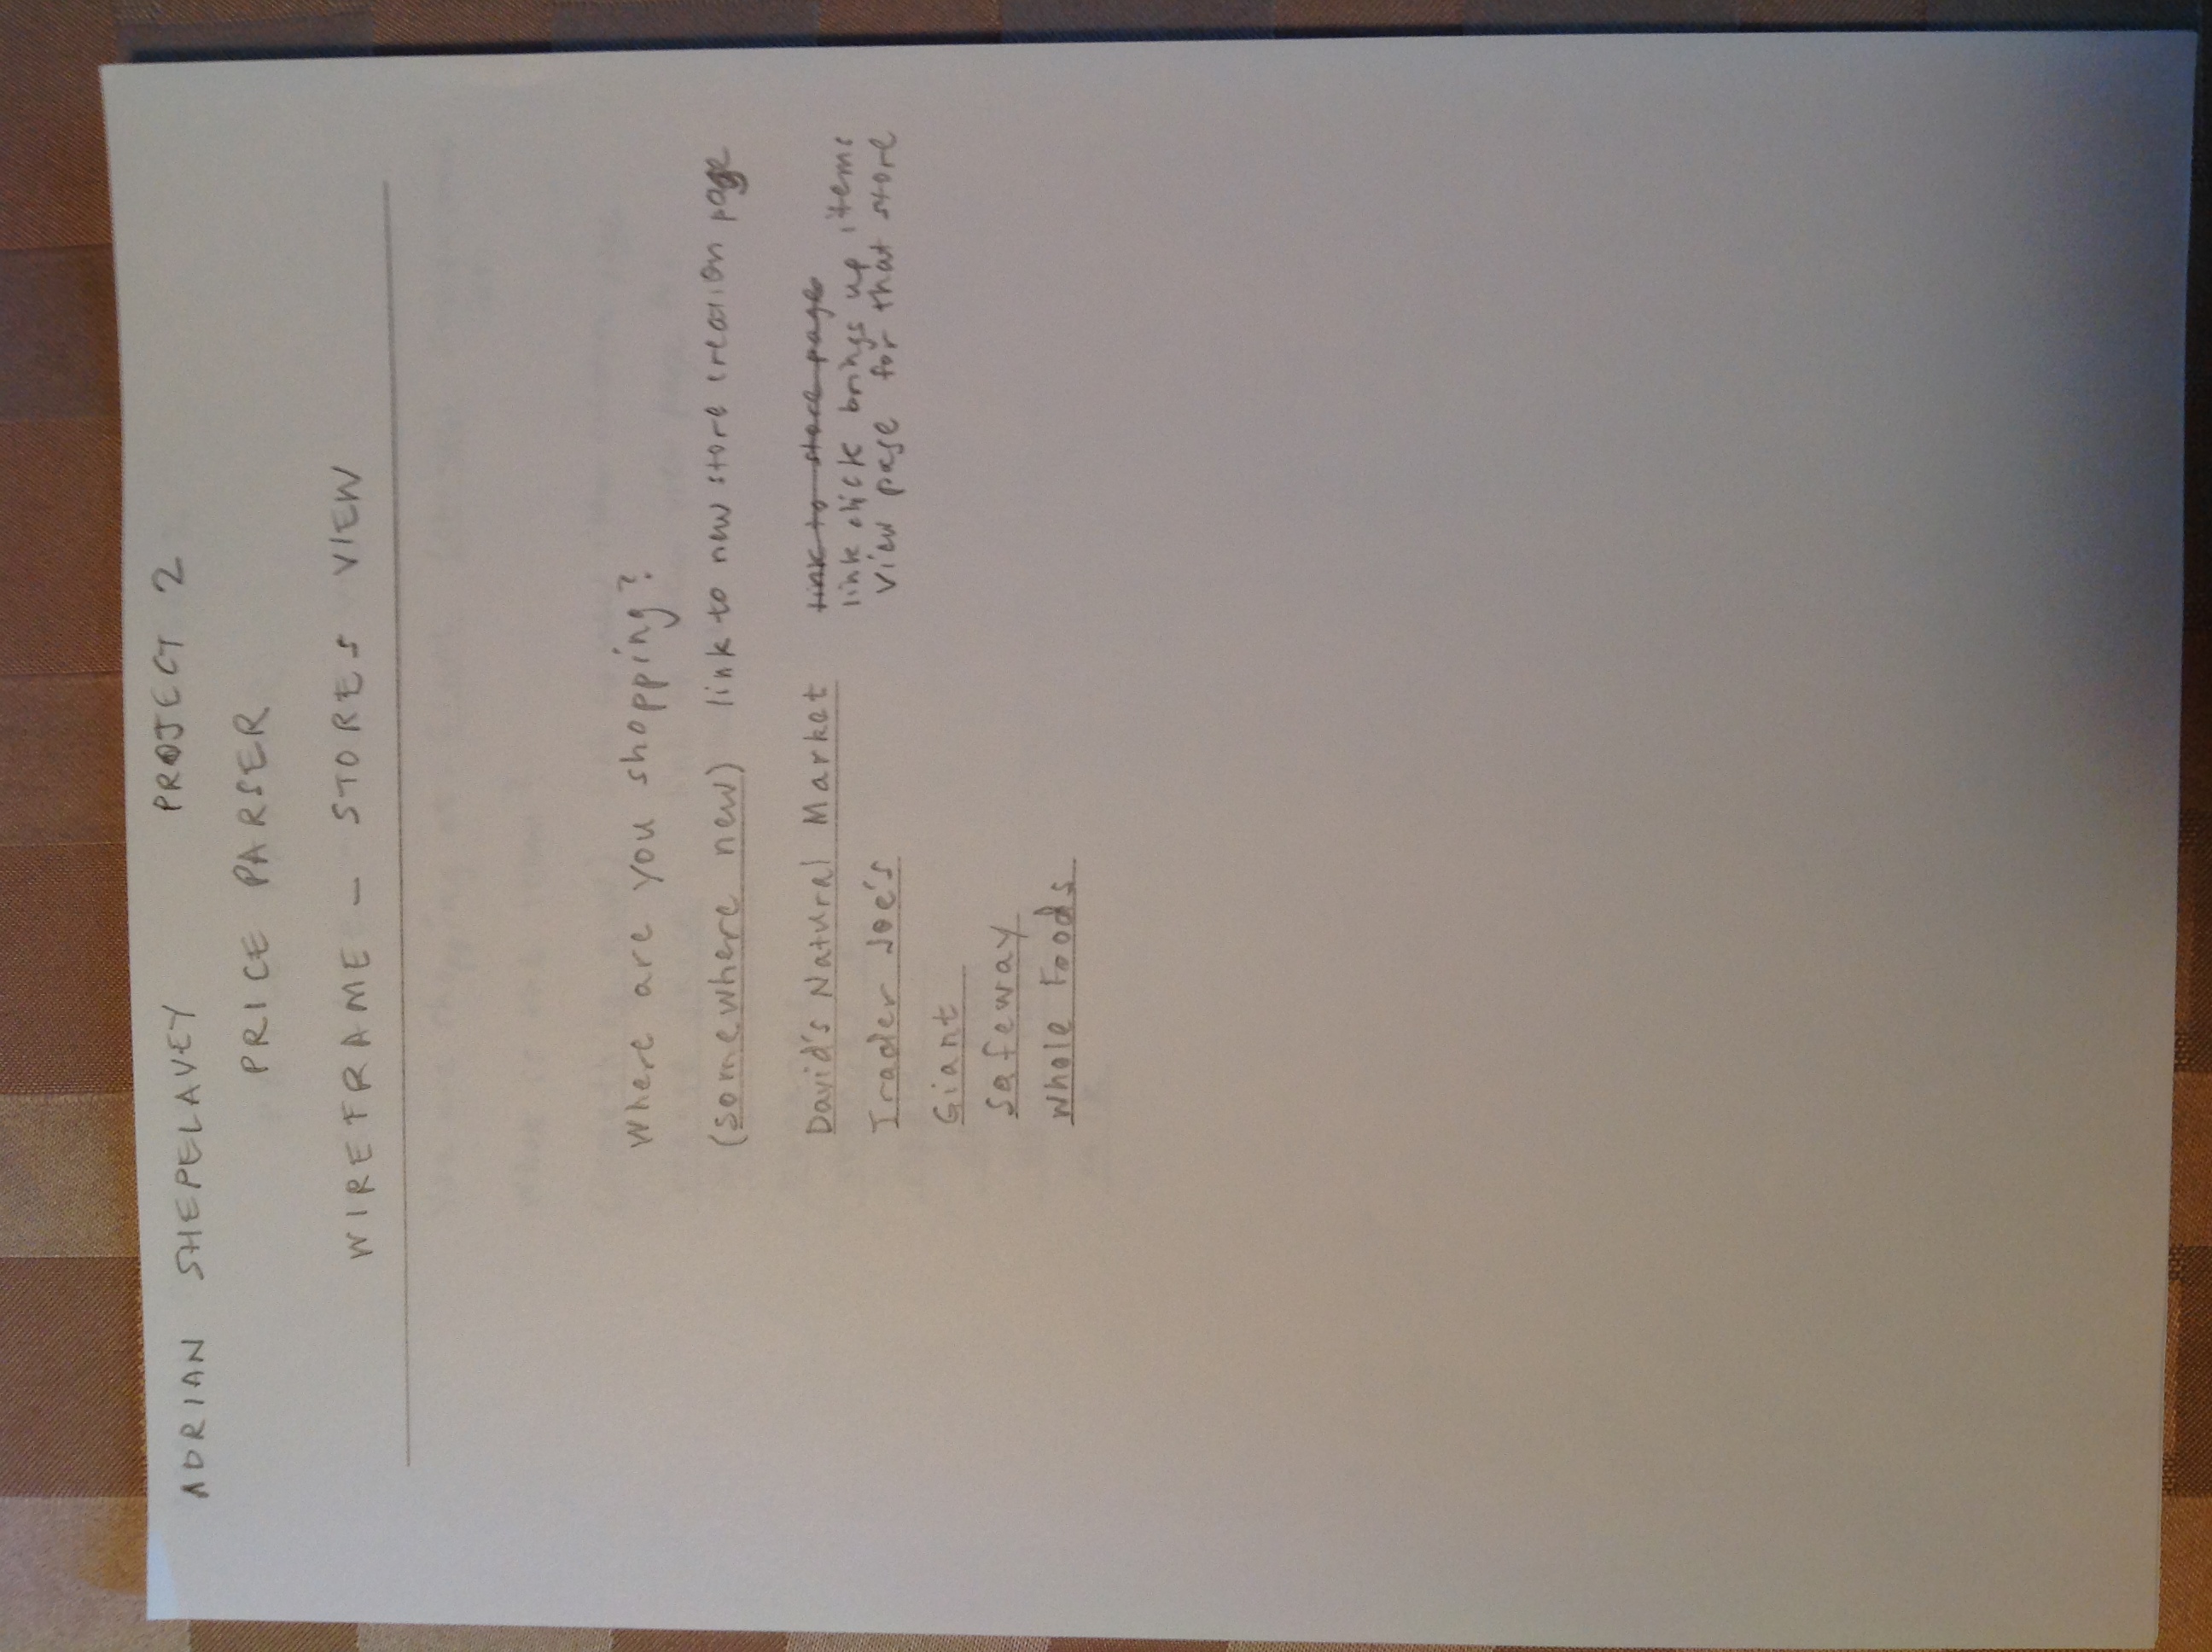 ADRIAN SHEPELAVEY PROJECT 2
PRICE PARSER
WIREFRAME - STORES VIEW
Where are you shopping?
(somewhere new) link to new store creation page
David's Natural Market link to store page
link click brings up items
Trader Joe's view page for that store
Giant
Safeway
Whole Foods